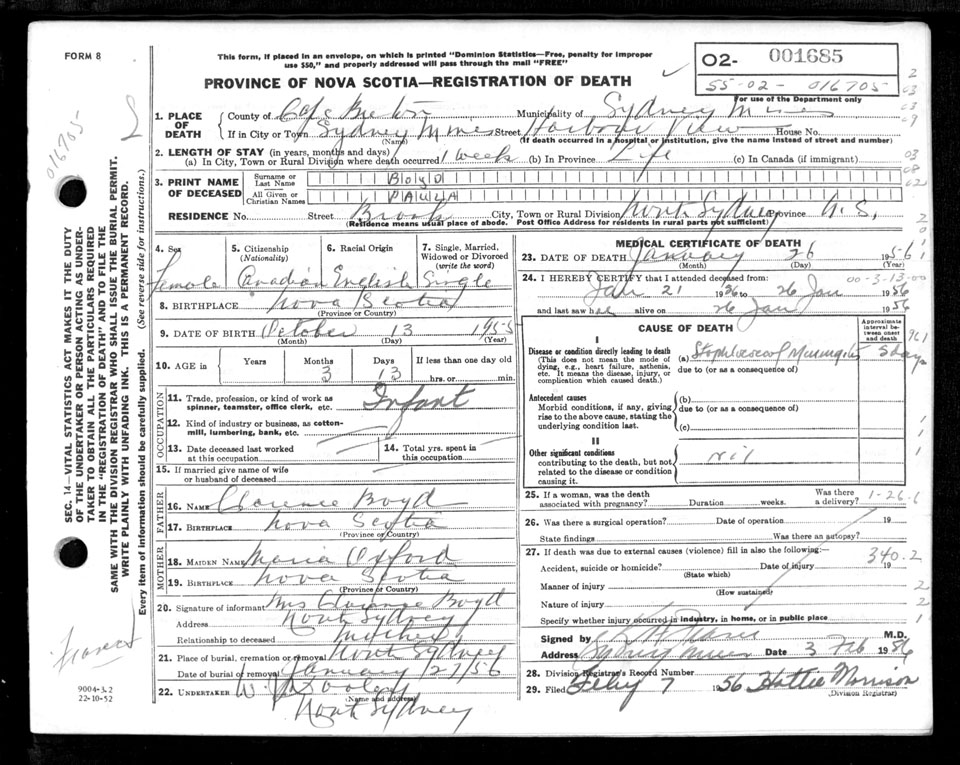 FORM 8
This form, if placed in an envelope, on which is printed "Dominion Statistics—Free, penalty for improper
use $50," and properly addressed will pass through the mail "FREE"
PROVINCE OF NOVA SCOTIA—REGISTRATION OF DEATH
02- 001685
55-02-016705
For use of the Department only
016705
SEC. 14—VITAL STATISTICS ACT MAKES IT THE DUTY
OF THE UNDERTAKER OR PERSON ACTING AS UNDER-
TAKER TO OBTAIN ALL THE PARTICULARS REQUIRED
IN THE "REGISTRATION OF DEATH" AND TO FILE THE
SAME WITH THE DIVISION REGISTRAR WHO SHALL ISSUE THE BURIAL PERMIT.
WRITE PLAINLY WITH UNFADING INK. THIS IS A PERMANENT RECORD.
Every item of information should be carefully supplied. (See reverse side for instructions.)
1. PLACE OF DEATH
County of Cape Breton Municipality of Sydney Mines
If in City or Town Sydney Mines Street Harbour View House No.
(Name) (If death occurred in a hospital or institution, give the name instead of street and number)
2. LENGTH OF STAY (in years, months and days)
(a) In City, Town or Rural Division where death occurred 1 week (b) In Province Life (c) In Canada (if immigrant)
3. PRINT NAME OF DECEASED
Surname or Last Name Boyd
All Given or Christian Names PAULA
RESIDENCE No. Street Brook City, Town or Rural Division North Sydney Province N.S.
(Residence means usual place of abode. Post Office Address for residents in rural parts not sufficient)
4. Sex Female
5. Citizenship (Nationality) Canadian
6. Racial Origin English
7. Single, Married, Widowed or Divorced (write the word) Single
8. BIRTHPLACE Nova Scotia
(Province or Country)
9. DATE OF BIRTH October 13 1955
(Month) (Day) (Year)
10. AGE in Years Months 3 Days 13 If less than one day old hrs. or min.
OCCUPATION
11. Trade, profession, or kind of work as spinner, teamster, office clerk, etc. Infant
12. Kind of industry or business, as cotton-mill, lumbering, bank, etc.
13. Date deceased last worked at this occupation
14. Total yrs. spent in this occupation
15. If married give name of wife or husband of deceased
FATHER
16. NAME Clarence Boyd
17. BIRTHPLACE Nova Scotia
(Province or Country)
MOTHER
18. MAIDEN NAME Maria Oxford
19. BIRTHPLACE Nova Scotia
(Province or Country)
20. Signature of informant Mrs Clarence Boyd
Address North Sydney
Relationship to deceased Mother
21. Place of burial, cremation or removal North Sydney
Date of burial or removal January 27/56
22. UNDERTAKER W.
(Name and address)
North Sydney
9004-3.2
22-10-52
MEDICAL CERTIFICATE OF DEATH
23. DATE OF DEATH January 26 1956
(Month) (Day) (Year)
24. I HEREBY CERTIFY that I attended deceased from: 00-3-13-00
Jan 21 1956 to 26 Jan 1956
and last saw her alive on 26 Jan 1956
CAUSE OF DEATH
Approximate interval between onset and death
I
Disease or condition directly leading to death (a) Staphlococcal Meningitis 5 days
(This does not mean the mode of dying, e.g., heart failure, asthenia, etc. It means the disease, injury, or complication which caused death.)
due to (or as a consequence of)
Antecedent causes
Morbid conditions, if any, giving rise to the above cause, stating the underlying condition last.
(b)
due to (or as a consequence of)
(c)
II
Other significant conditions
contributing to the death, but not related to the disease or condition causing it.
nil
25. If a woman, was the death associated with pregnancy? Duration weeks. Was there a delivery? 1-26-6
26. Was there a surgical operation? Date of operation 19
State findings Was there an autopsy?
27. If death was due to external causes (violence) fill in also the following:— 340.2
Accident, suicide or homicide? Date of injury 19
(State which)
Manner of injury
(How sustained)
Nature of injury
Specify whether injury occurred in industry, in home, or in public place
Signed by M.D.
Address Sydney Mines Date 3 Feb 1956
28. Division Registrar's Record Number
29. Filed Feby 7 1956 Hattie Morrison
(Division Registrar)